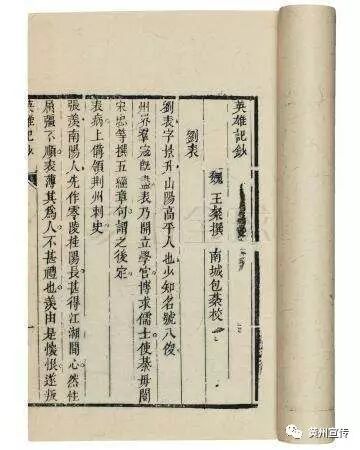 英雄記鈔
魏 王粲撰 南城包校
劉表
劉表字景升山陽高平人也少知名號八俊
州界羣寇旣盡表乃開立學官博求儒士使綦毋闓
宋忠等撰五經章句謂之後定
表病上備領荆州刺史
張羨南陽人先作零陵桂陽長甚得江湖間心然性
屈彊不順表薄其爲人不甚禮也羨由是懷恨遂叛
英雄記鈔
黄州宣传